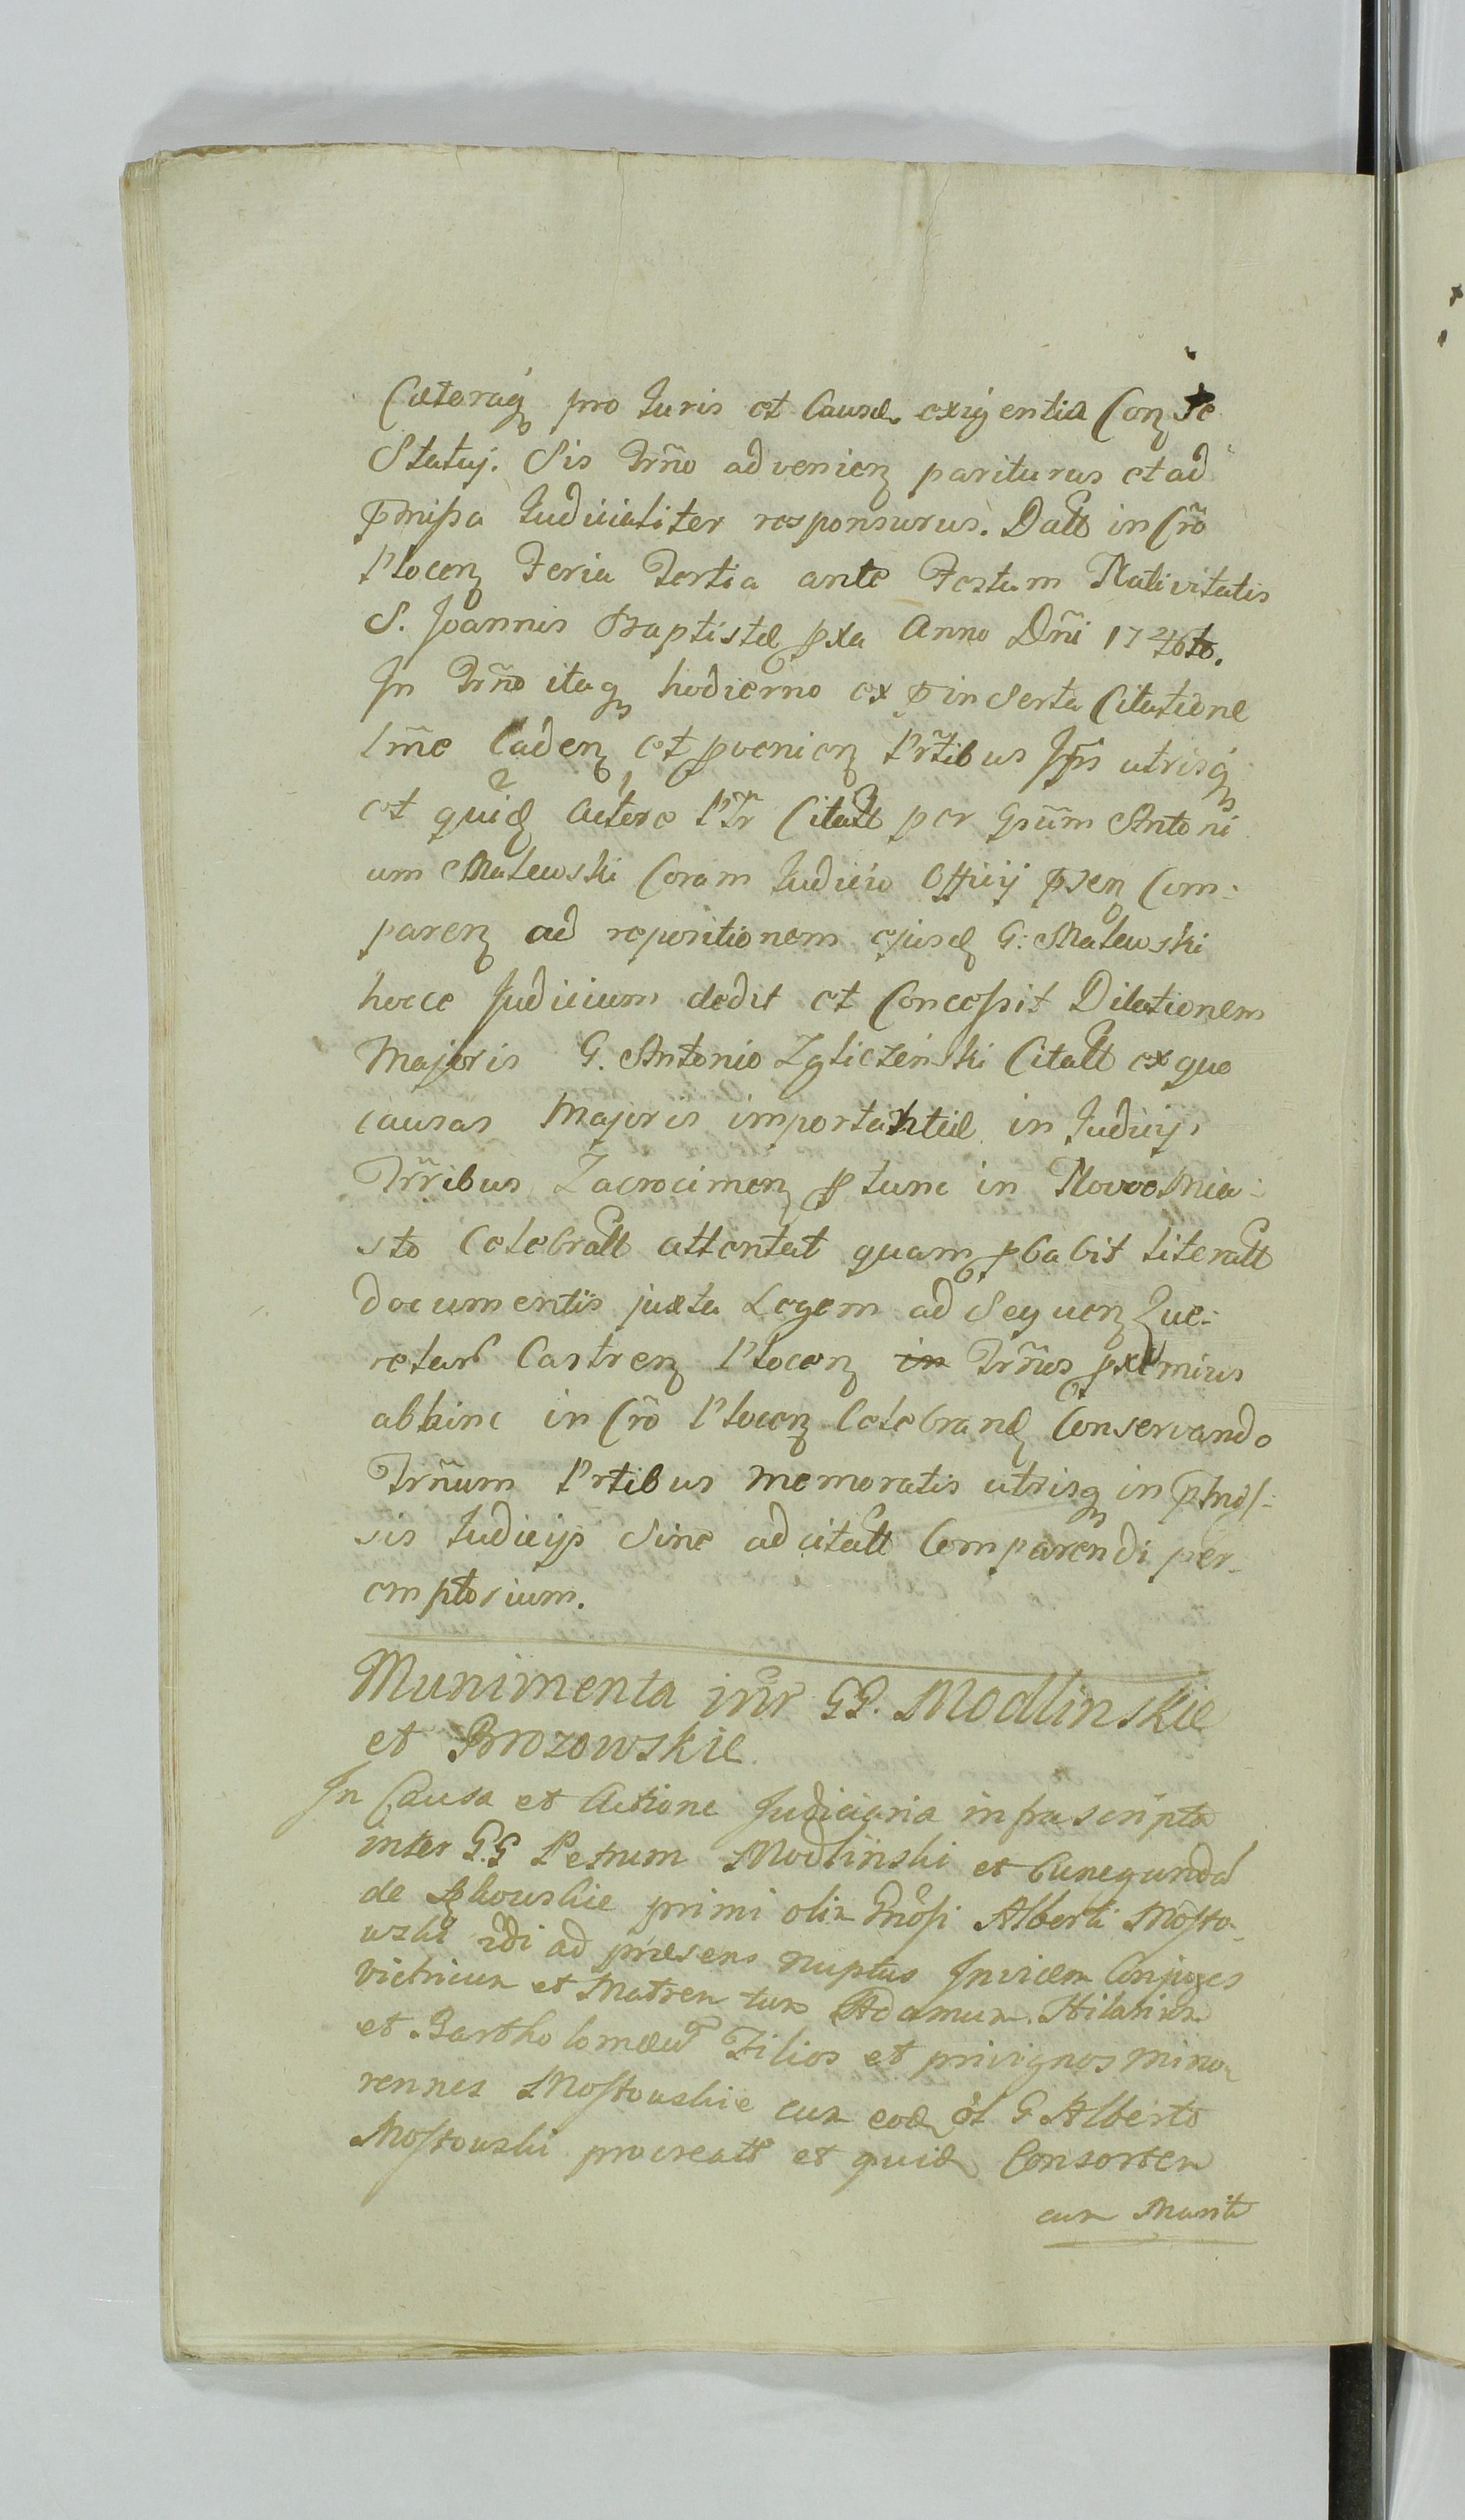 Cæteraq pro Iuris et Causæ exigentia Conz te
Statuj. Sis Trño advenienz pariturus et ad
pmissa Iudicialiter responsurus. Datt in Cro
Plocenz Feria Tertia ante Festum Nativitatis
S. Joannis Baptistæ pxa Anno Dñi 1726to.
In Trño itaq hodierno ex pinserta Citatione
lme Cadenz et pvenienz Prtibus Ipis utrisq
et quidz Actore Ptr Citatt per Gsum Antoni
um Malewski Coram Iudicio Officij psenz Com:
parenz ad repositionem ejusdz G: Malewski
hocce Judicium dedit et Concessit Dilationem
Majoris G. Antonio Zgliczeński Citatt ex quo
causas Majoris importantiæ in Iudicijs
Trribus Zacrocimenz p tunc in Nowemia:
sto Celebratt attentat quam pbabit literatt
documentis juxta Legem ad Sequenz Que:
relar Castrenz Plocenz Trños pximius
abhinc in Cro Plocenz Celebrandz Conservando
Trñum Prtibus memoratis utrisq in pmis:
sis Iudicijs Sine adcitatt Comparendi per
emptorium.
Munimenta intr GG. Modlinskie
et Brozowskie
In Causa et Actione Judiciaria infrascripta
inter G.G Petrum Modlinski et Cunegunda
de primi olim Gnosi Alberti Mosto
wski 2di ad præsens nuptus Invicem Conjuges
Victricum et Matrem tum Adamum Hilarium
et Bartholomæum Filios et privignos mino
rennes Mostowskie cum eodz ol G Alberto
Mostowski procreatt et quidz Consortem
cum Marito